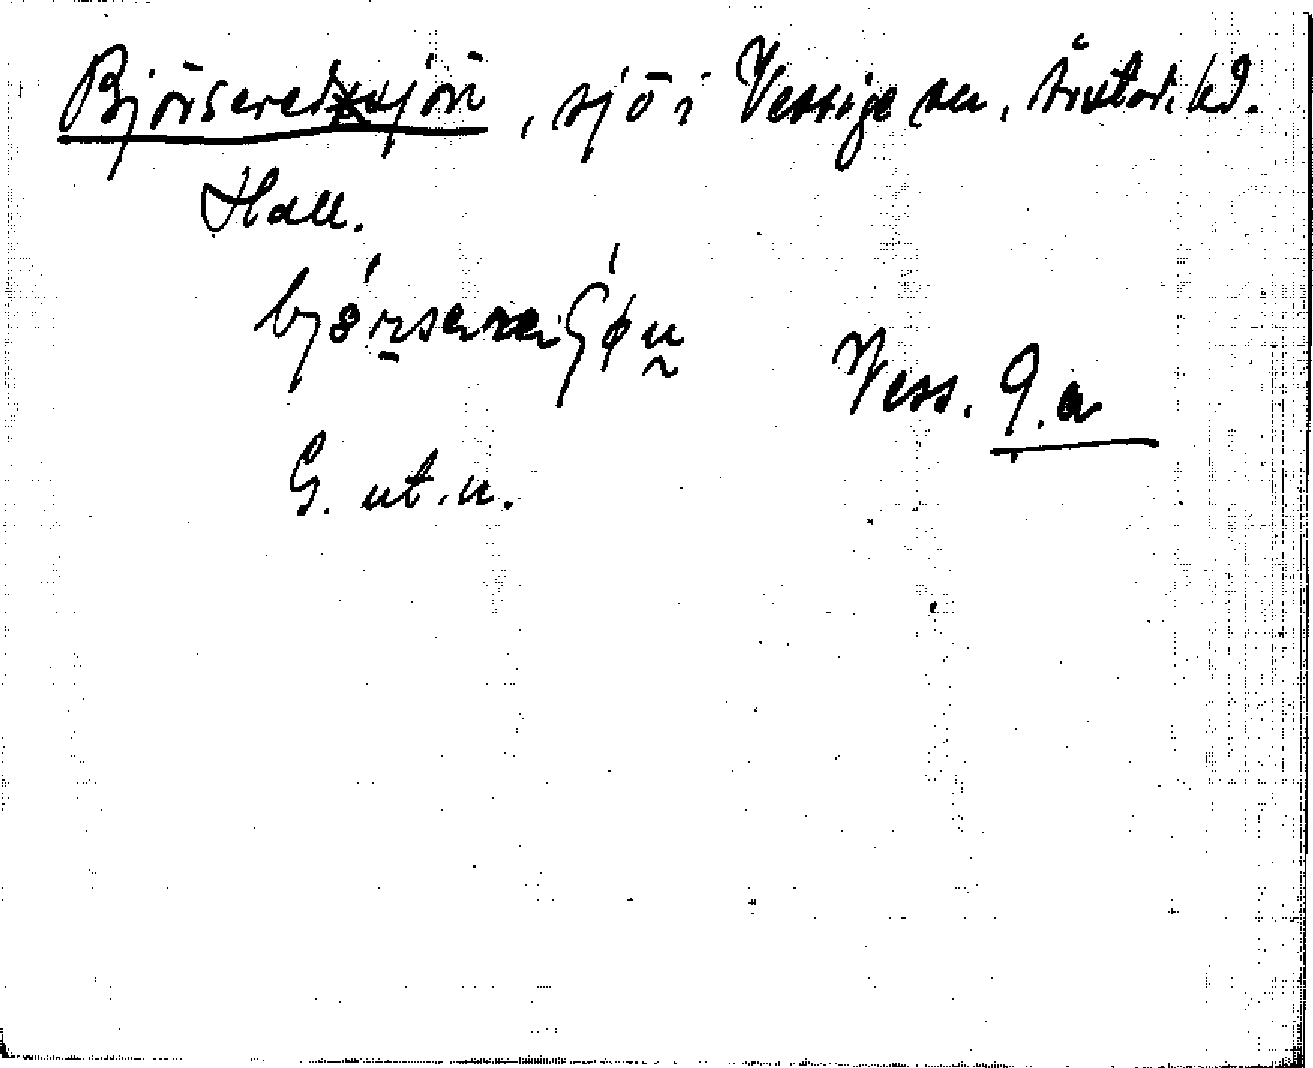 Björseredssjön, sjö i Vessige sn, Årstad. hd.
Hall.
Vess. 9.a
G. ut.u.